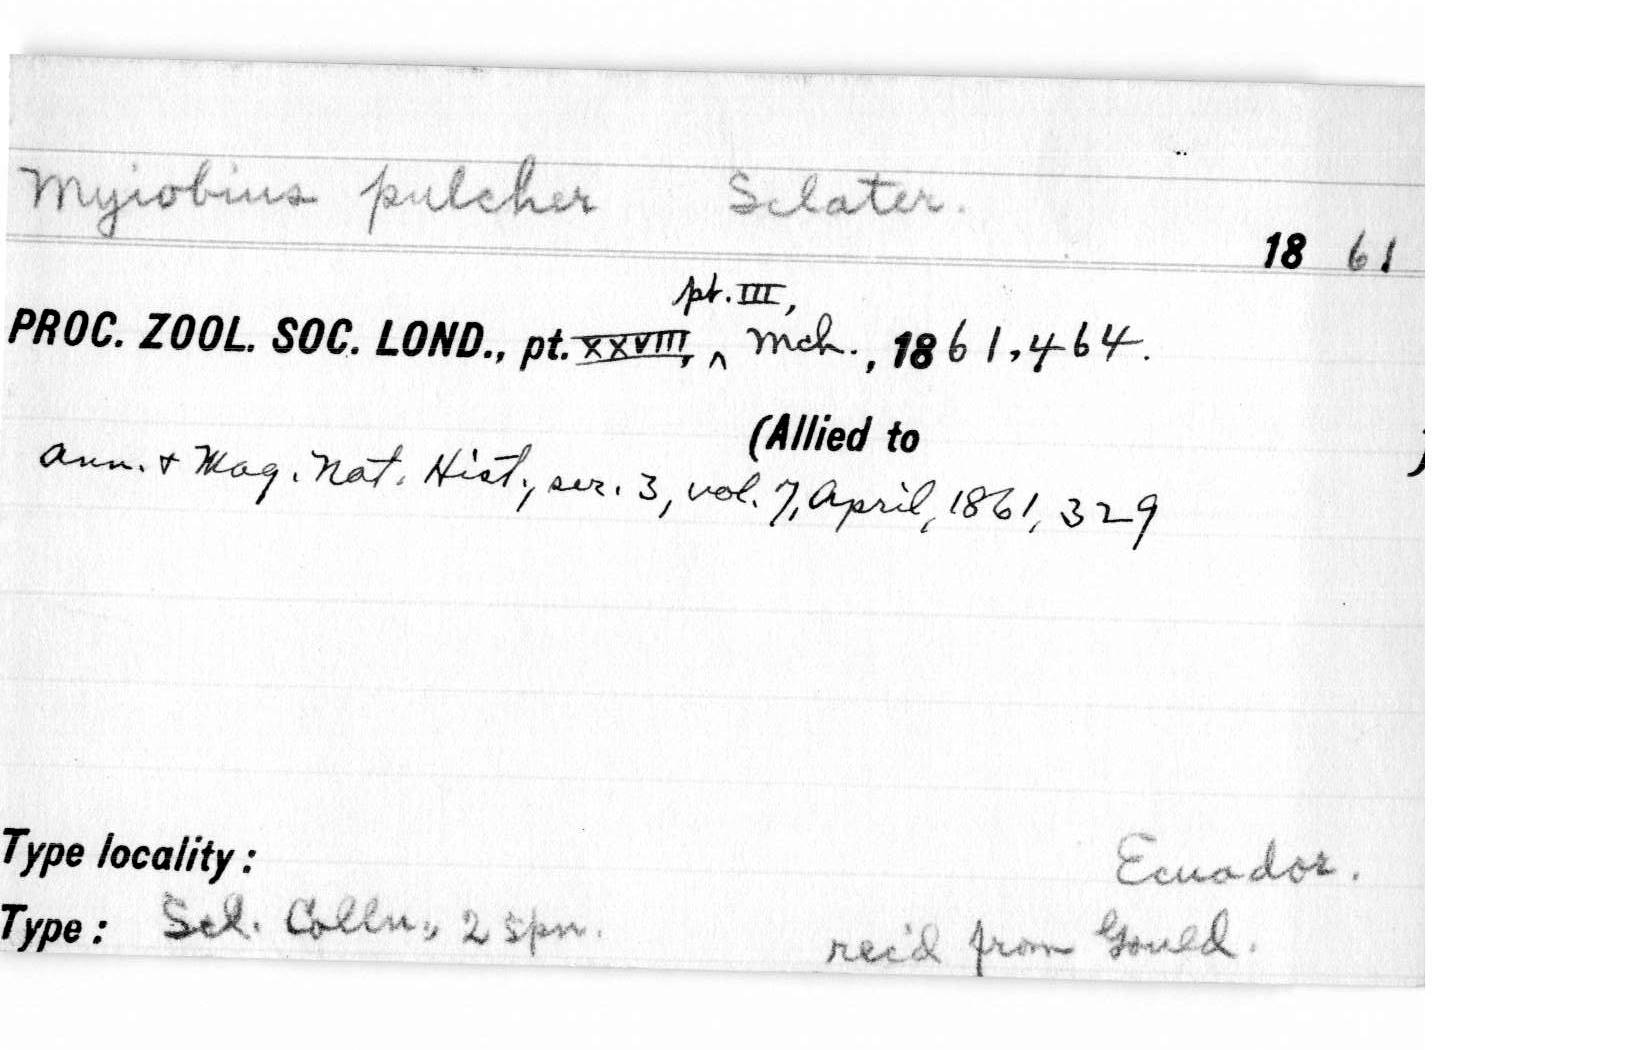 Myiobius pulcher Sclater.
18 61
pt. III,
PROC. ZOOL. SOC. LOND., pt. XXVIII, ^ Mch., 1861, 464.
(Allied to )
Ann. + Mag. Nat. Hist., ser. 3, vol. 7, April, 1861, 329
Type locality: Ecuador.
Type: Scl. Colln., 2 spn. rec'd from Gould.